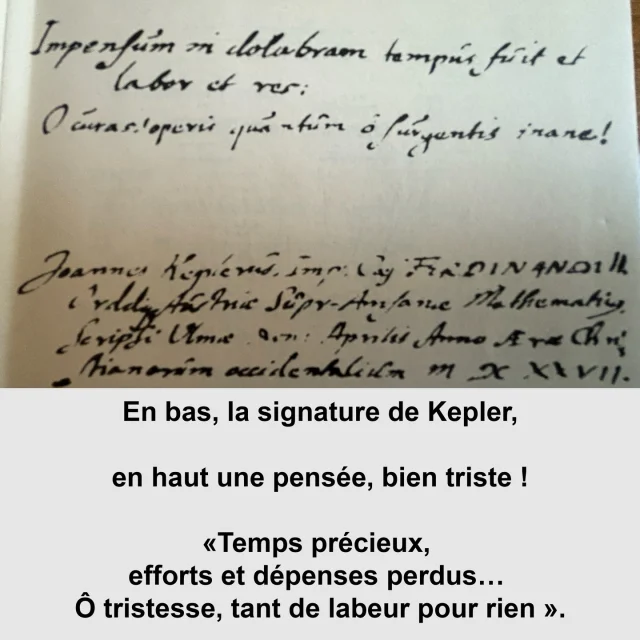 Impensum in dolabram tempus fuit et
labor et res:
O curas! operis quantum ô surgentis inane!
Joannes Keplerus. imp: Cæs FERDINANDI II.
Austriæ Supr-Anisanæ Mathematicus.
Scripsi Ulmæ Aprilis Anno Æræ Chri
stianorum occidentalium M D C XXVII.
En bas, la signature de Kepler,
en haut une pensée, bien triste !
«Temps précieux,
efforts et dépenses perdus…
Ô tristesse, tant de labeur pour rien ».